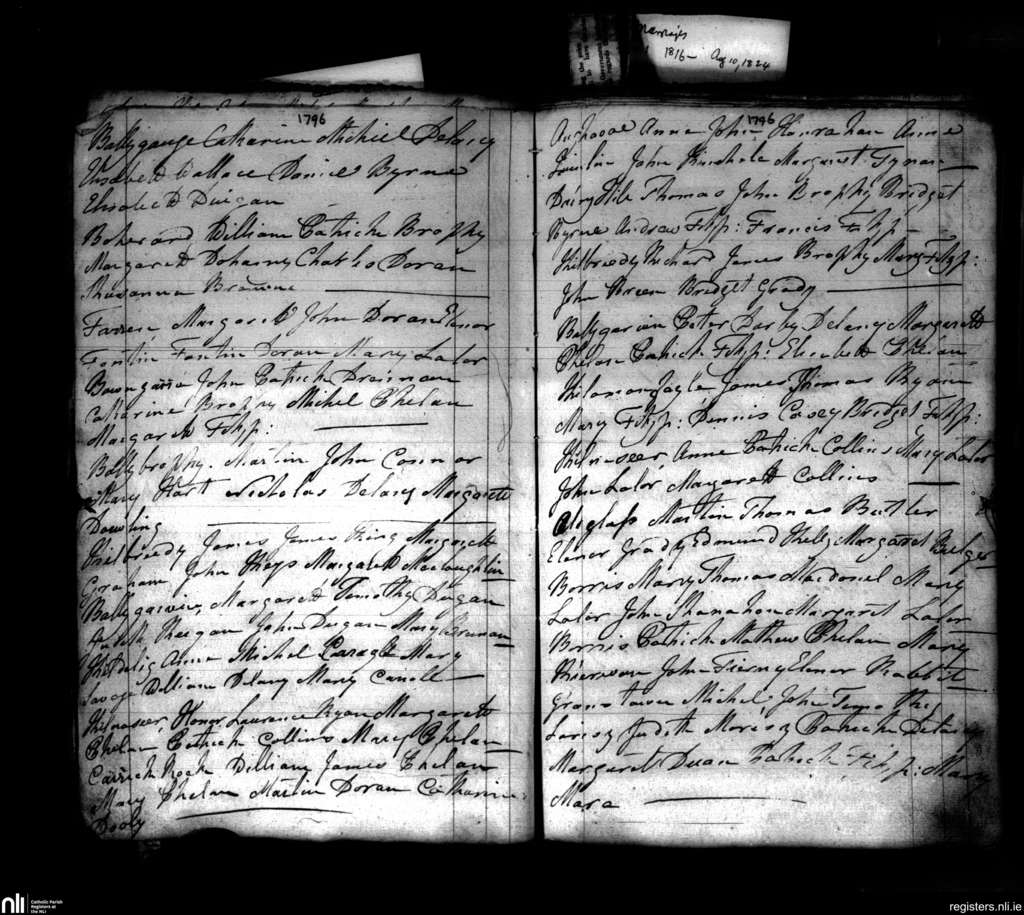 Marriages
1816 - Aug 10, 1824
1796
Ballygauge Catharine Michiel Delany
Elisabeth Wallace Daniel Byrne
Elisabeth Duigan
Boherard William Patrick Brophy
Margarett Doharny Charles Doran
Browne
Farren Margarett John Doran Elenor
Fantin Doran Mary Lalor
John Patrick Dreinane
Catharine Brophy Michel Phelan
Margarett Fitzp:
Ballybrophy Martin John Connor
Mary Hart Nicholas Delany Margarett
Dowling
Kilbriedy James James King Margarett
Graham John Keys Margarett Maclaughlin
Ballygarvin Margarett Timothy Duigan
Judith John Duigan Mary Brenan
Kildelig Anne Michel Mary
Savage William Delany Mary Carroll
Kilnaseer Honor Laurence Ryan Margarett
Phelan Patrick Collins Mary Phelan
Carrick Rock William James Phelan
Mary Phelan Martin Doran Catharine
Dooly
1796
Anne John Hanrahan Anne
Quinlin John Kinchele Margaret Tynan
Dairy Hile Thomas John Brophy Bridget
Byrne Andrew Fitzp: Francis Fitzp
Kilbreedy Richard James Brophy Mary Fitzp:
John Breen Bridget Grady
Ballygarvin Peter Darby Delany Margarett
Phelan Patrick Fitzp: Elisabeth Phelan
James Thomas Byrne
Mary Fitzp: Dennis Casey Bridget Fitzp:
Kilnaseer Anne Patrick Collins Mary Lalor
John Lalor Margarett Collins
Martin Thomas Butler
Elenor Grady Edmund Kelly Margaret
Borris Mary Thomas Macdonel Mary
Lalor John Shanahan Margaret Lalor
Borris Patrick Mathew Phelan Mary
Kierwan John Tierny Elenor Rabbit
Grans town Michel John
Judith Patrick Delany
Margaret Duan Patrick Fitzp: Mary
Mara
nli
Catholic Parish
Registers at
the NLI
registers.nli.ie